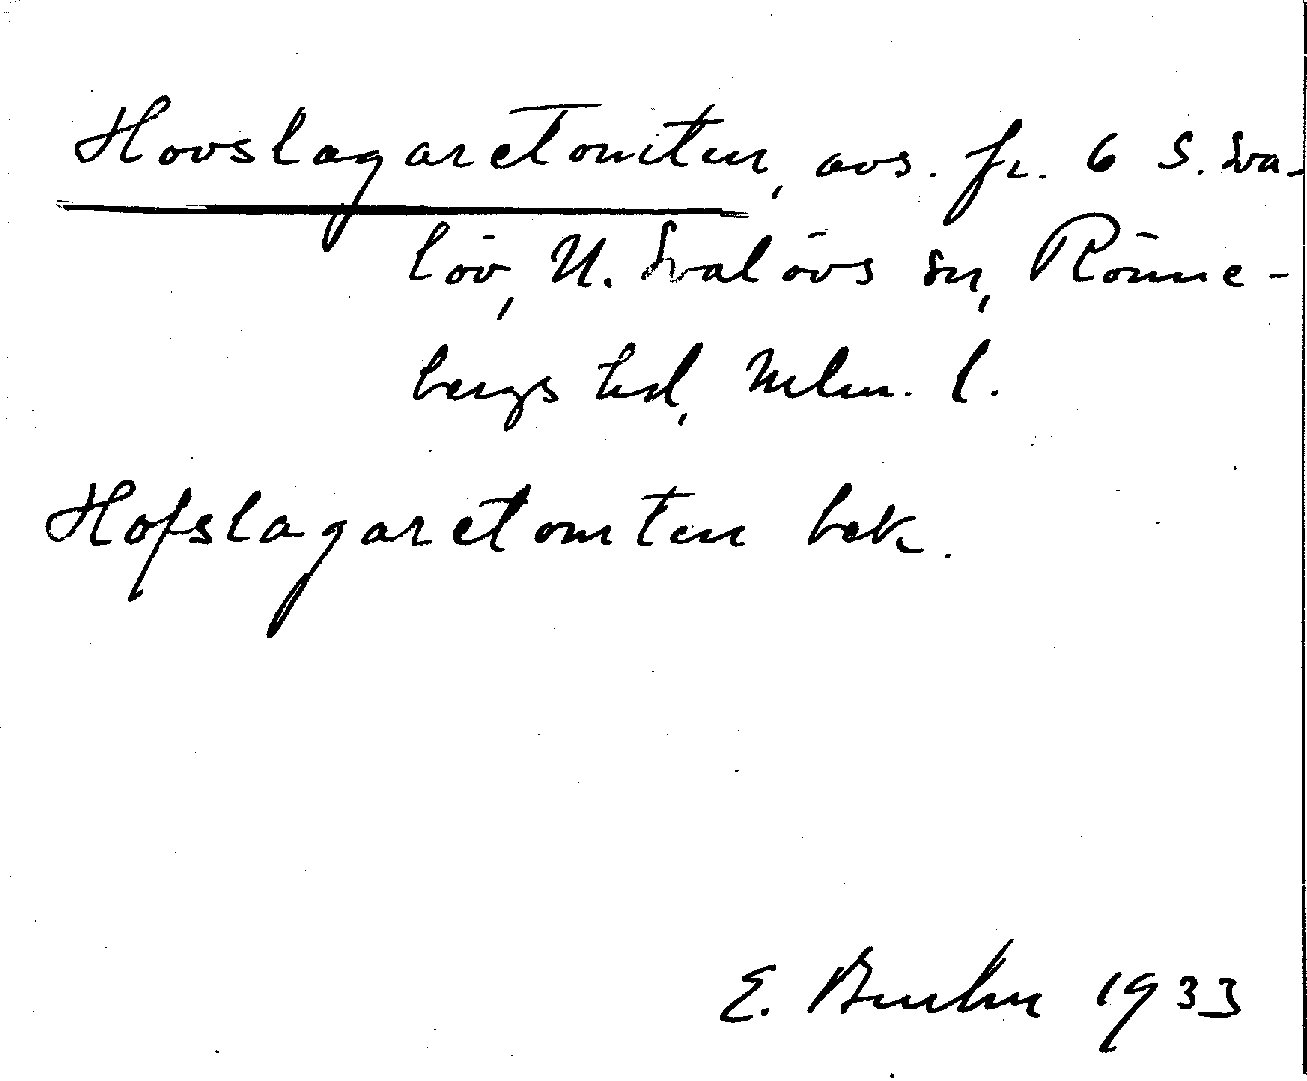 Hovslagaretomten, avs. fr. 6 S. Sva-
löv, N. Svalövs sn, Rönne-
bergs hd, Mlm. l.
Hofslagaretomten bek.
E. Bruhn 1933